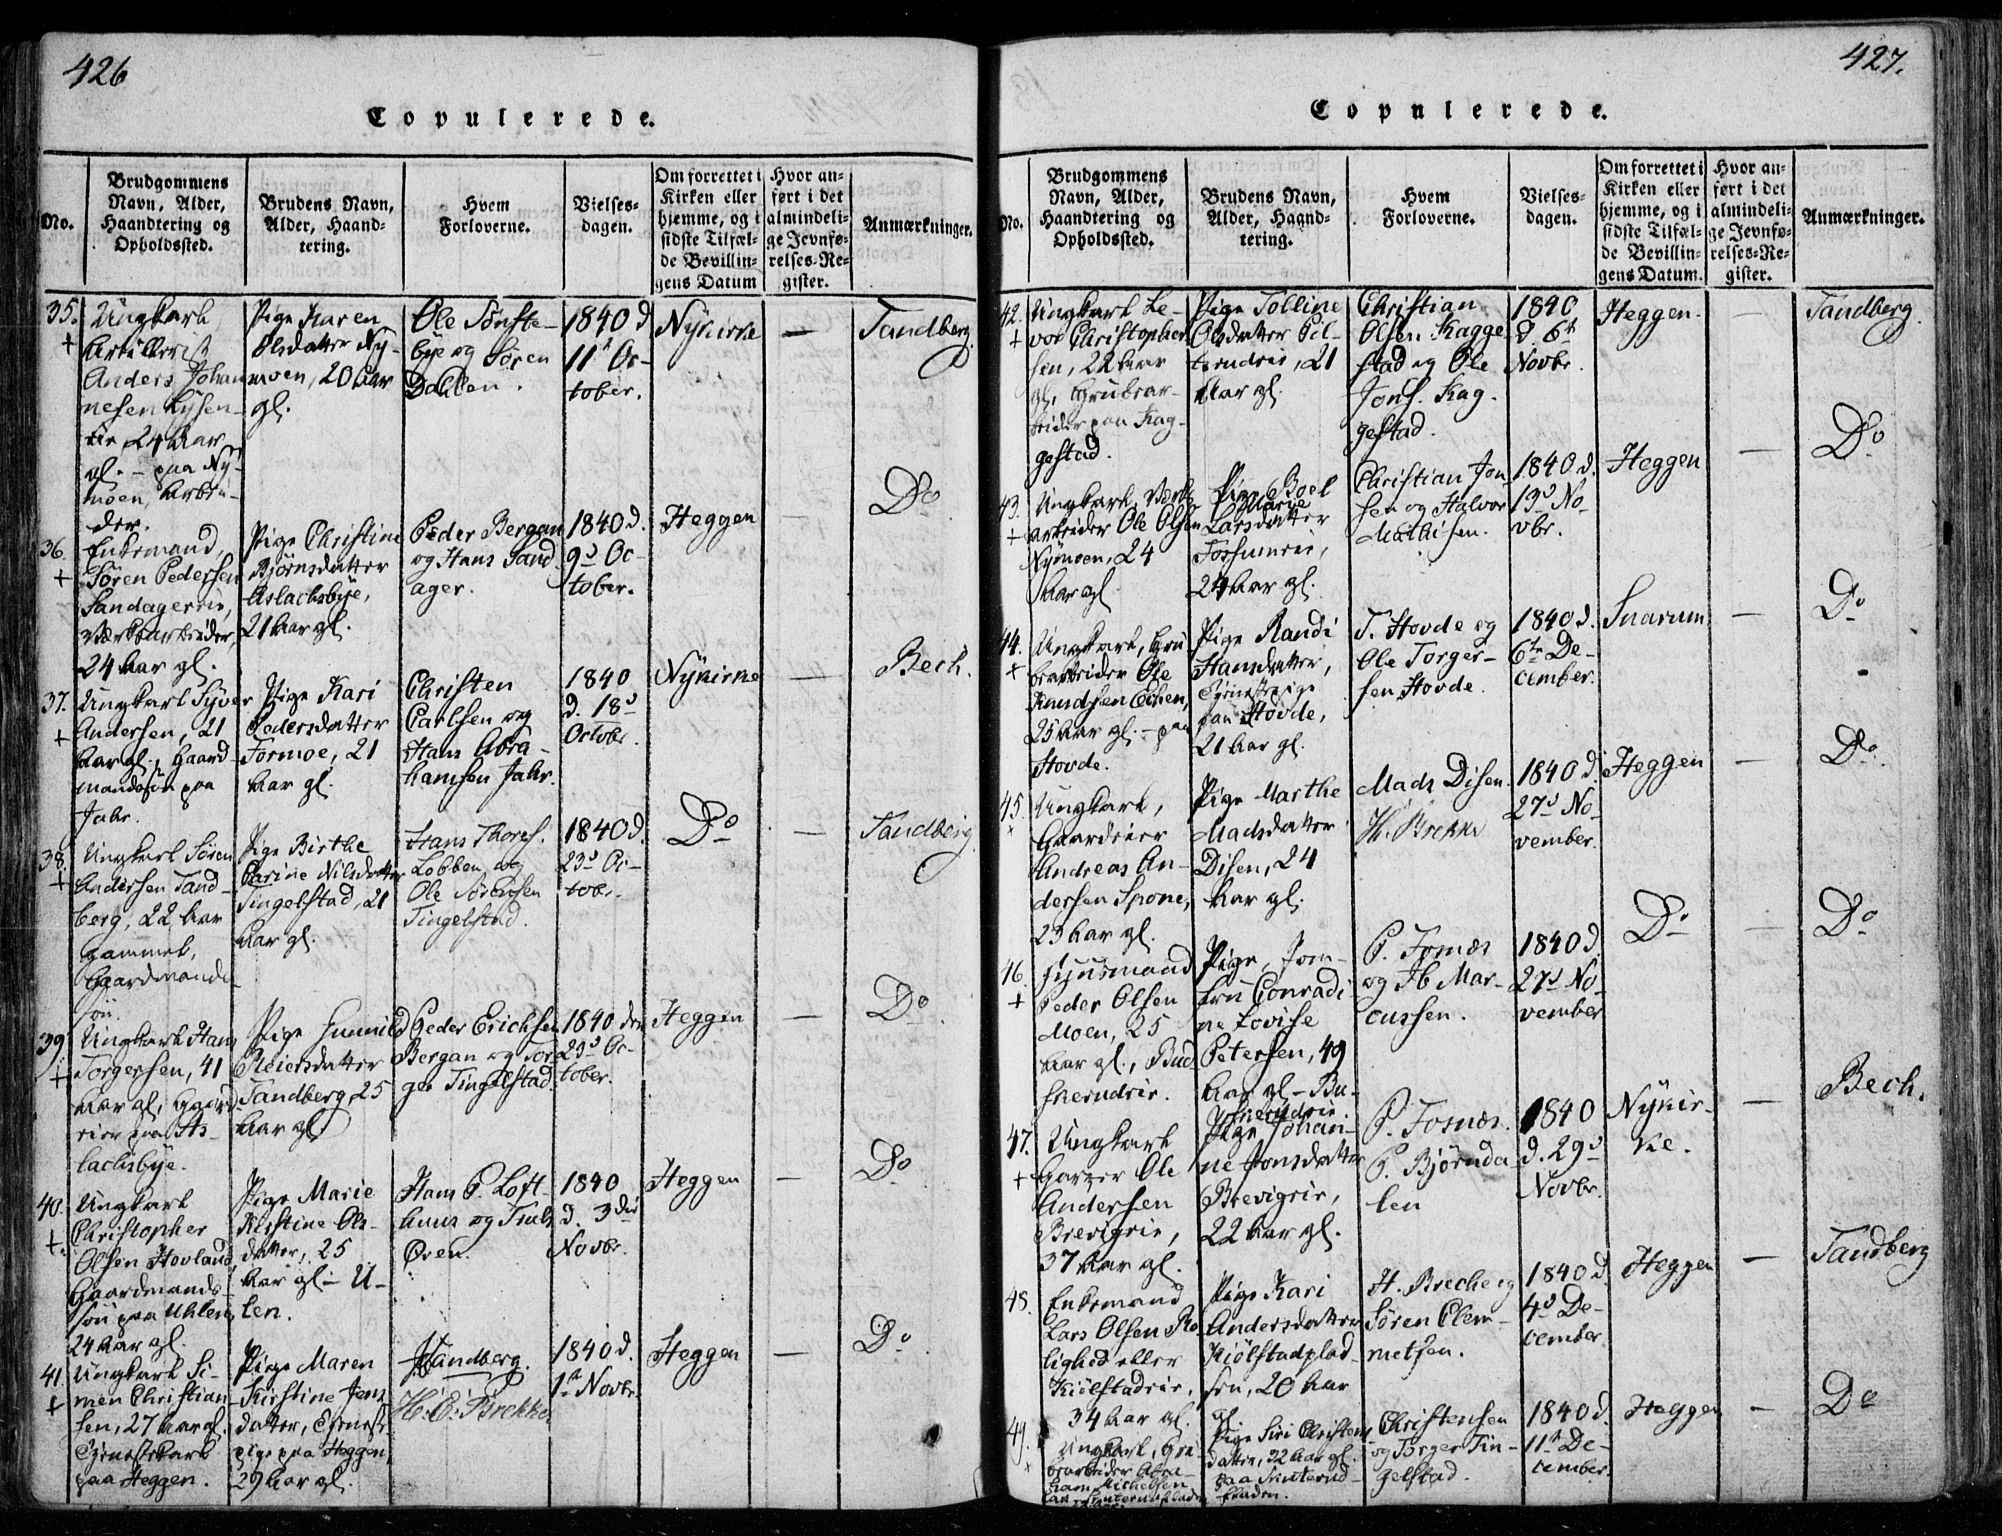 426
Copulerede.
No.
Brudgommens
Navn, Alder,
Haandtering og
Opholdssted.
Brudens Navn,
Alder, Haand-
tering.
Hvem
Forloverne.
Vielses-
dagen.
Om forrettet i
Kirken eller
hjemme, og i
sidste Tilfæl-
de Bevillin-
gens Datum
Hvor an-
ført i det
almindeli-
ge Jevnfø-
relses-Re-
gister.
Anmærkninger.
35.
+
Ungkarl
Artillerist
Anders Johan
nesen Lysen-
eie, 24 Aar
gl. - paa Ny-
moen, Arbei-
der.
Pige Karen
Olsdatter Ny-
moen, 20 Aar
gl.
Ole Sønste-
bye og Søren
Dahlen.
1840 d
11te Oc-
tober.
Nykirke
—
Tandberg.
36.
+
Enkemand,
Søren Pedersen
Sandagereie,
Værksarbeider,
24 Aar gl.
Pige Christine
Bjørnsdatter
Aslachsbye,
21 Aar gl.
Peder Bergan
og Hans Sand
ager.
1840 d.
9d Oc-
tober.
Heggen
—
Do
37.
+
Ungkarl Syver
Andersen, 21
Aar gl., Gaard
mandssøn paa
Jahr.
Pige Kari
Pedersdatter
Formoe, 21
Aar gl.
Christen
Carlsen og
Hans Abra-
hamsen Jahr.
1840
d. 18d
Octobr.
Nykirke
—
Bech.
38.
+
Ungkarl Søren
Andersen Tand-
berg, 22 Aar
gammel,
Gaardmands
søn.
Pige Birthe
Carine Nilsdatter
Tingelstad, 21
Aar gl.
Hans Thoresf.
Lobben og
Ole Sørensen
Tingelstad.
1840 d.
23d Oc-
tobr.
Do
—
Tandberg
39.
+
Ungkarl Hans
Torgersen, 41
Aar gl, Gaard
eier paa As-
lachsbye.
Pige Gunnild
Reiersdatter
Tandberg 25
Aar gl.
Peder Erichsen
Bergan og Tor
ger Tingelstad.
1840 den
23d Oc-
tober.
Heggen
—
Do
40.
+
Ungkarl
Christopher
Olsen Hovland,
Gaardmands-
søn paa Uhlen,
24 Aar gl.
Pige Marie
Kirstine Ols-
datter, 25
Aar gl - U-
len.
Hans P. Loft-
huus og Truls
Oven.
1840
d. 3die
Novbr.
Heggen
—
Do
41.
+
Ungkarl Si-
men Christian
sen, 27 Aar gl.
Tjenestekarl
paa Heggen.
Pige Maren
Kirstine Jens
datter, Tjeneste
pige paa Heggen,
29 Aar gl.
Tandberg.
H. E. Brekke
1840 d.
1te Novbr.
Heggen
—
Do
427.
Copulerede.
No.
Brudgommens
Navn, Alder,
Haandtering og
Opholdssted.
Brudens Navn,
Alder, Haand-
tering.
Hvem
Forloverne.
Vielses-
dagen.
Om forrettet i
Kirken eller
hjemme, og i
sidste Tilfæl-
de Bevillin-
gens Datum.
Hvor an-
ført i det
almindeli-
ge Jevnfø-
relses-Re-
gister.
Anmærkninger.
42.
+
Ungkarl Le-
vor Christopher
sen, 22 Aar
gl., Grubear-
beider paa Kag-
gestad.
Pige Tolline
Olsdatter
21
Aar gl.
Christian
Olsen Kagge
stad og Ole
Jons. Kag-
gestad.
1840
d. 6te
Novbr.
Heggen.
—
Tandberg.
43.
+
Ungkarl, Værks
arbeider Ole Olsen
Nymoen, 24
Aar gl
Pige Boel
Marie
Larsdatter
Fossumeie,
24 Aar gl.
Christian Jon
sen og Halvor
Mathisen.
1840 d.
13d No-
vbr.
Heggen
—
Do
44.
+
Ungkarl, Gru
bearbeider Ole
Knudsen Eken,
25 Aar gl. - paa
Hovde.
Pige Randi
Hansdatter,
Tjenestepige
paa Hovde,
21 Aar gl.
T. Hovde og
Ole Torger-
sen Hovde.
1840 d.
6te De-
cember.
Snarum
—
Do
45.
+
Ungkarl,
Gaardeier
Andreas An-
dersen Spone,
23 Aar gl.
Pige Marthe
Madsdatter
Disen, 24
Aar gl.
Mads Disen.
H. Brekke
1840 d.
27d No-
vember.
Heggen
—
Do.
46.
+
Huusmand
Peder Olsen
Moen, 25
Aar gl., Bud
skerudeie.
Pige, Jom-
fru Conradi
ne Lovise
Petersen, 49
Aar gl - Bu-
skerudeie.
P. Fosnæs
og Ab Mar-
cussen.
1840 d.
27d No-
vember
Do
—
Do
47.
+
Ungkarl
Garver Ole
Andersen
Brevigeie,
37 Aar gl.
Pige Johan-
ne Jonsdatter
Brevigeie,
22 Aar gl.
P. Fosnæs.
P. Bjørnda-
len
1840
d. 29d
Novbr.
Nykir-
ke.
—
Bech.
48.
Enkemand
Lars Olsen Ro-
lighed eller
Kiølstadeie,
34 Aar gl.
Pige Kari
Andersdatter
Kiølstadplad-
sen, 20 Aar
gl.
H. Breche og
Søren Clem-
metsen.
1840 d.
4d De-
cember
Heggen
—
Tandberg
49.
+
Ungkarl, Gru-
bearbeider Abra-
ham Michelsen
Pige Siri Christens
datter, 32 Aar gl.
paa
Christensen
og Torger Tin-
gelstad.
1840 d.
11te De-
cember.
Heggen
—
Do